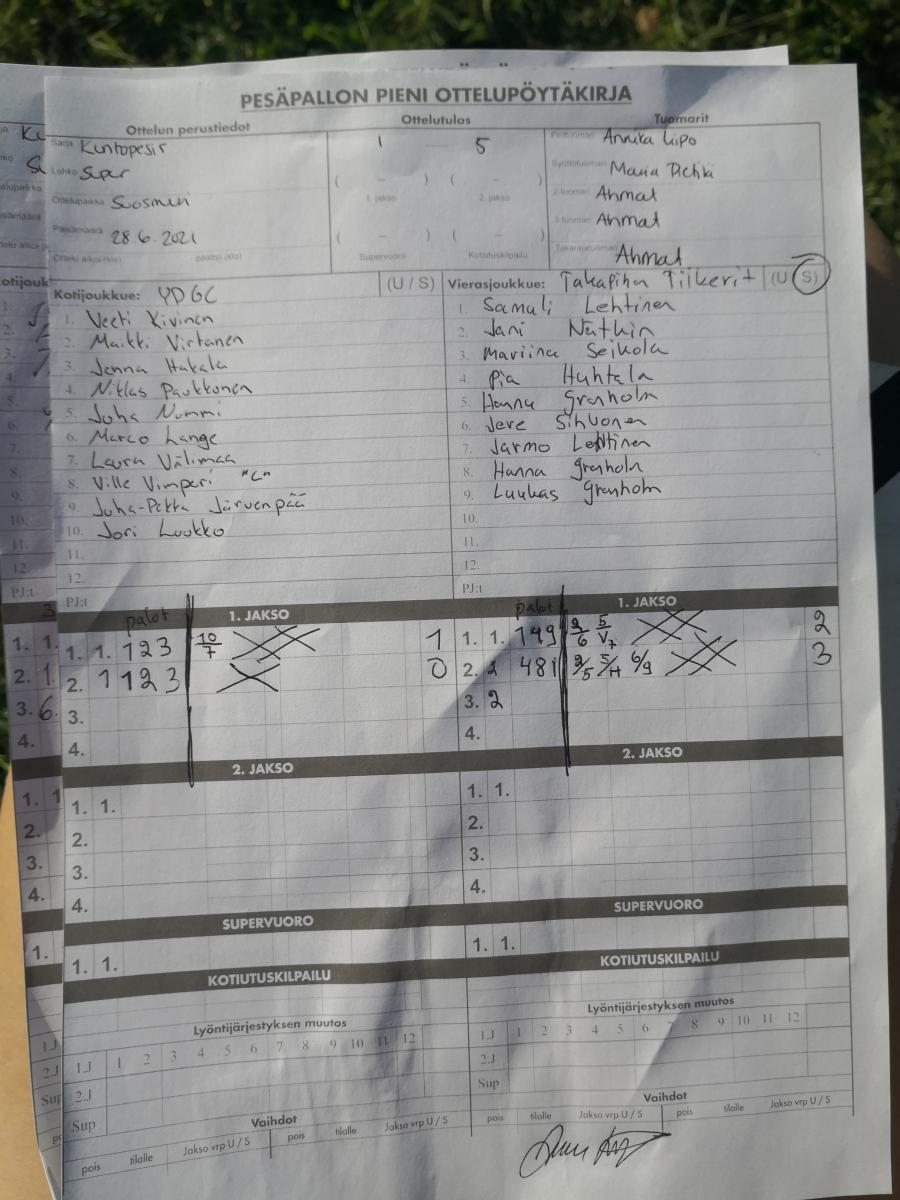 PESÄPALLON PIENI OTTELUPÖYTÄKIRJA
Ottelun perustiedot Ottelutulos Tuomarit
Sarja Kuntopesis 1 – 5 Pelituomari Annika Lipo
Lohko Super ( – ) ( – ) Syöttötuomari Maria Pichki
1. jakso 2. jakso 2-tuomari Ahmat
Ottelupaikka Suosmeri 3-tuomari Ahmat
Päivämäärä 28.6.2021 ( – ) ( – ) Takarajatuomari Ahmat
Ottelu alkoi (klo) päättyi (klo) Supervuoro Kotiutuskilpailu
Kotijoukkue: YDGC (U / S) Vierasjoukkue: Takapihan Tiikerit (U / S)
1. Veeti Kivinen 1. Samuli Lehtinen
2. Maikki Virtanen 2. Jani Nätkin
3. Jenna Hakala 3. Mariina Seikola
4. Niklas Paukkonen 4. Pia Huhtala
5. Juha Nummi 5. Hannu Grenholm
6. Marco Lange 6. Jere Sihvonen
7. Laura Välimaa 7. Jarmo Lehtinen
8. Ville Vimperi "C" 8. Hanna Grenholm
9. Juha-Pekka Järvenpää 9. Luukas Grenholm
10. Jori Luukko 10.
11. 11.
12. 12.
PJ:t PJ:t
palot 1. JAKSO palot 1. JAKSO
1. 1. 123 10/7 1 1. 1. 149 2/6 5/V7 2
2. 1 123 0 2. 2 481 2/5 5/H 6/9 3
3. 3. 2
4. 4.
2. JAKSO 2. JAKSO
1. 1. 1. 1.
2. 2.
3. 3.
4. 4.
SUPERVUORO SUPERVUORO
1. 1. 1. 1.
KOTIUTUSKILPAILU KOTIUTUSKILPAILU
Lyöntijärjestyksen muutos Lyöntijärjestyksen muutos
1.J 1 2 3 4 5 6 7 8 9 10 11 12 1.J 1 2 3 4 5 6 7 8 9 10 11 12
2.J 2.J
Sup Sup
Vaihdot Vaihdot
pois tilalle Jakso vrp U / S pois tilalle Jakso vrp U / S pois tilalle Jakso vrp U / S pois tilalle Jakso vrp U / S